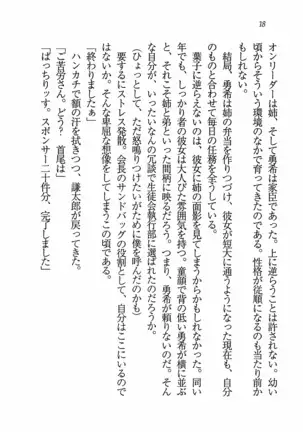 18
オンリーダーは姉、そして勇希は家臣であった。上に逆らうことは許されない。幼い
頃からそういう環境のなかで育ってきたのである。性格が従順になるのも当たり前か
もしれない。
結局、勇希は姉の弁当を作りつづけ、彼女が短大に通うようになった現在も、自分
のものと合わせて毎日の任務を全うしている。
葉子に逆らえないのは、彼女に姉の面影を見てしまうからかもしれなかった。同い
年でも、しっかり者の彼女は大人びた雰囲気を持つ。童顔で背の低い勇希が横に並ぶ
と、それこそ姉と弟といった間柄に映るだろう。つまり、勇希が頼りないのだ。そん
な自分が、いったいなんの冗談で生徒会執行部に選ばれたのだろうか。
(ひょっとして、ただ怒鳴りつけたいがために僕を呼んだのかも)
要するにストレス発散。会長のサンドバッグの役割として、自分はここにいるので
はないか。そんな卑屈な想像をしてしまうこの頃である。
「終わりましたぁ」
ハンカチで額の汗を拭きつつ、謙太郎が戻ってきた。
「ご苦労さん。どう? 首尾は」
「ばっちりッす。スポンサー二十件分、完了しました」